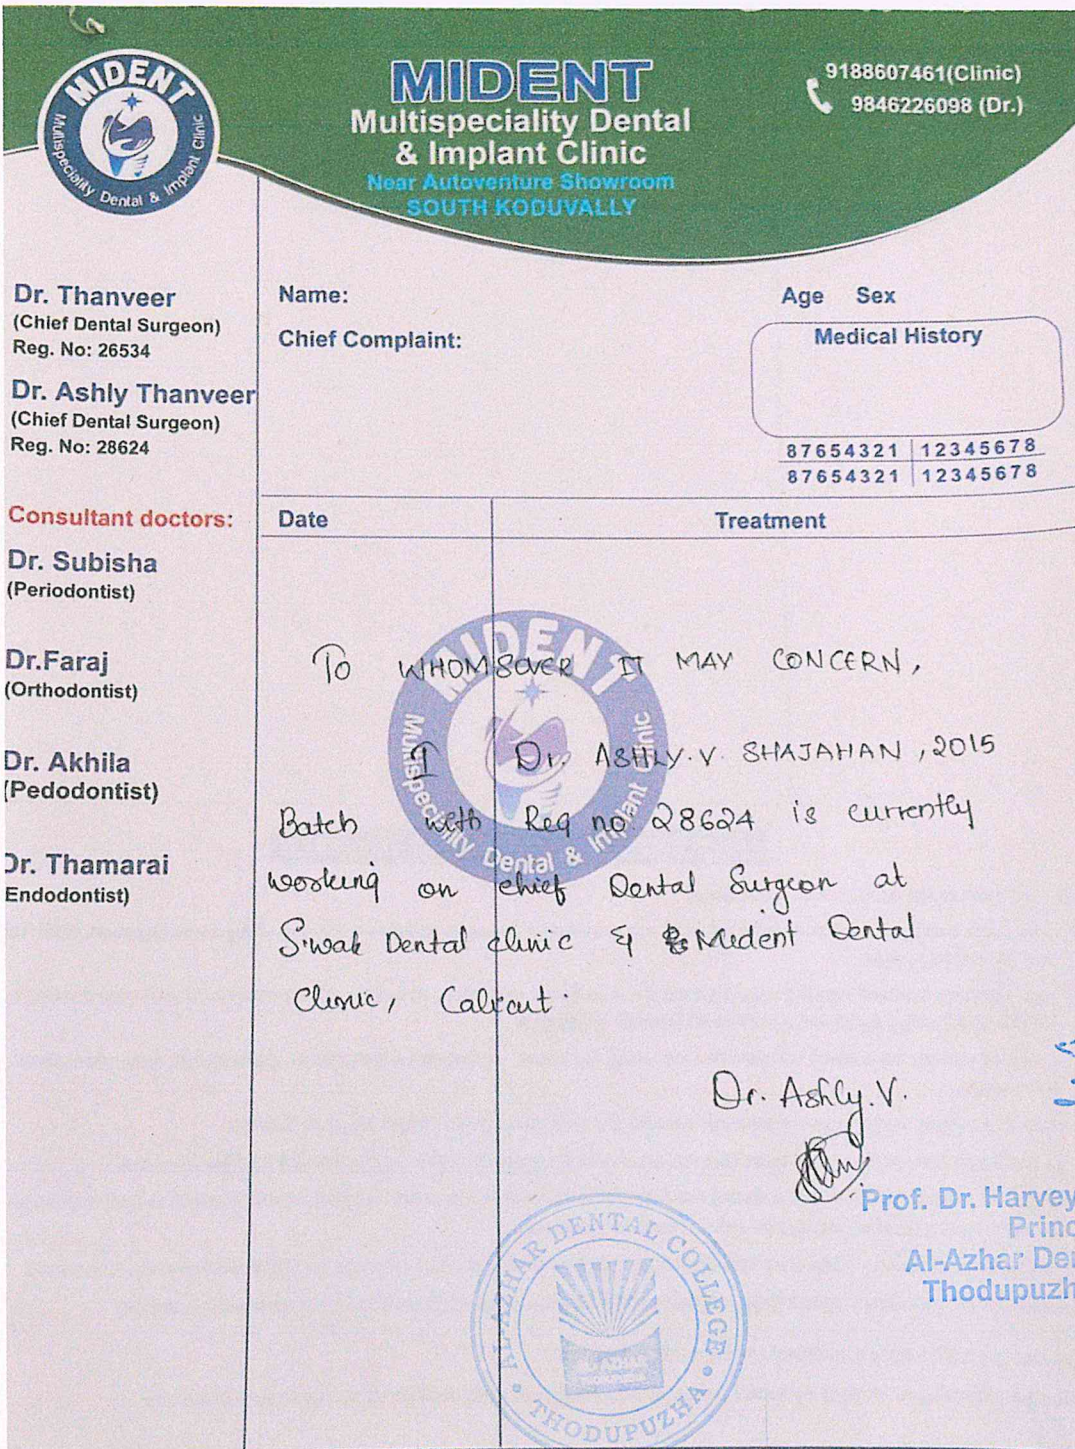 MIDENT
Multispeciality Dental & Implant Clinic
MIDENT
Multispeciality Dental
& Implant Clinic
Near Autoventure Showroom
SOUTH KODUVALLY
9188607461(Clinic)
9846226098 (Dr.)
Dr. Thanveer
(Chief Dental Surgeon)
Reg. No: 26534
Dr. Ashly Thanveer
(Chief Dental Surgeon)
Reg. No: 28624
Consultant doctors:
Dr. Subisha
(Periodontist)
Dr.Faraj
(Orthodontist)
Dr. Akhila
(Pedodontist)
Dr. Thamarai
Endodontist)
Name:
Age Sex
Chief Complaint:
Medical History
87654321 12345678
87654321 12345678
Date
Treatment
MIDENT
Multispeciality Dental & Implant Clinic
To WHOMSOVER IT MAY CONCERN,
I Dr. ASHLY.V. SHAJAHAN, 2015
Batch with Reg no. 28624 is currently
working on chief Dental Surgeon at
Siwak Dental clinic & Mident Dental
Clinic, Calicut.
Dr. Ashly.V.
Prof. Dr. Harvey
Princ
Al-Azhar Den
Thodupuzh
AL-AZHAR DENTAL COLLEGE
THODUPUZHA